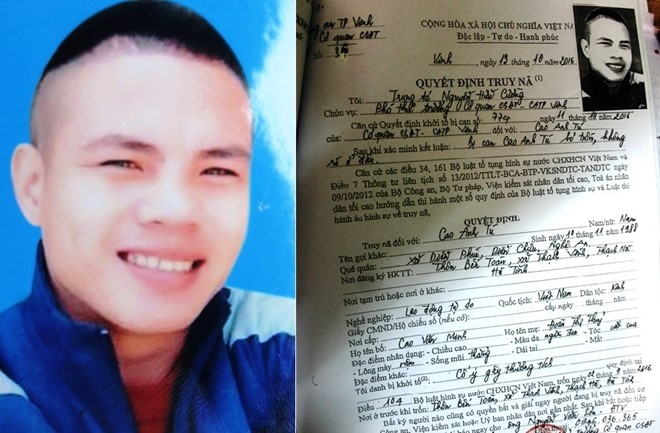 an TP Vinh
Cơ quan CSĐT
Số:
CỘNG HÒA XÃ HỘI CHỦ NGHĨA VIỆT NA
Độc lập - Tự do - Hạnh phúc
Vinh, ngày 13 tháng 10 năm 2016
QUYẾT ĐỊNH TRUY NÃ (1)
Tôi: Trung tá Nguyễn Hữu Cường
Chức vụ: Phó thủ trưởng Cơ quan CSĐT- CATP Vinh
Căn cứ Quyết định khởi tố bị can số: ngày 11 tháng 10 năm 2016
của: Cơ quan CSĐT - CATP Vinh đối với: Cao Anh Tú
Sau khi xác minh kết luận: bị can Cao Anh Tú bỏ trốn, không
Căn cứ các điều 34, 161 Bộ luật tố tụng hình sự nước CHXHCN Việt Nam và
Điều 7 Thông tư liên tịch số 13/2012/TTLT-BCA-BTP-VKSNDTC-TANDTC ngày
09/10/2012 của Bộ Công an, Bộ Tư pháp, Viện kiểm sát nhân dân tối cao, Toà án nhân
dân tối cao hướng dẫn thi hành một số quy định của Bộ luật tố tụng hình sự và Luật thi
hành án hình sự về truy nã,
QUYẾT ĐỊNH:
Truy nã đối với: Cao Anh Tú Nam/nữ: Nam
Tên gọi khác: Sinh ngày 10 tháng 11 năm 1988
Quê quán: xã Diễn Phú, Diễn Châu, Nghệ An
Nơi đăng ký HKTT: Thôn Bắc Toàn, xã Thạch Vĩnh, Thạch Hà
Hà Tĩnh
Nơi tạm trú hoặc nơi ở khác:
Nghề nghiệp: Lao động tự do Quốc tịch: Việt Nam Dân tộc: Kinh
Giấy CMND/Hộ chiếu số (nếu có): cấp ngày tháng năm
Nơi cấp:
Họ tên bố: Cao Văn Minh Họ tên mẹ: Đoàn Thị Thủy
Đặc điểm nhân dạng: - Chiều cao - Màu da - Tóc
- Lông mày - Sống mũi thẳng - Dái tai - Mắt
Đặc điểm khác:
Tội danh bị khởi tố Cố ý gây thương tích quy định tại
Điều 104 Bộ luật hình sự nước CHXHCN Việt Nam, trốn ngày 2016
Nơi ở trước khi trốn: Thôn Bắc Toàn, xã Thạch Vĩnh, Thạch Hà, Hà Tĩnh
Bất kỳ người nào cũng có quyền bắt và giải ngay người đang bị truy nã đến cơ
an, Viện kiểm sát hoặc Uỷ ban nhân dân nơi gần nhất. Sau khi bắt hoặc tiếp
báo ngay cho ông Nguyễn ĐTV
CSĐT